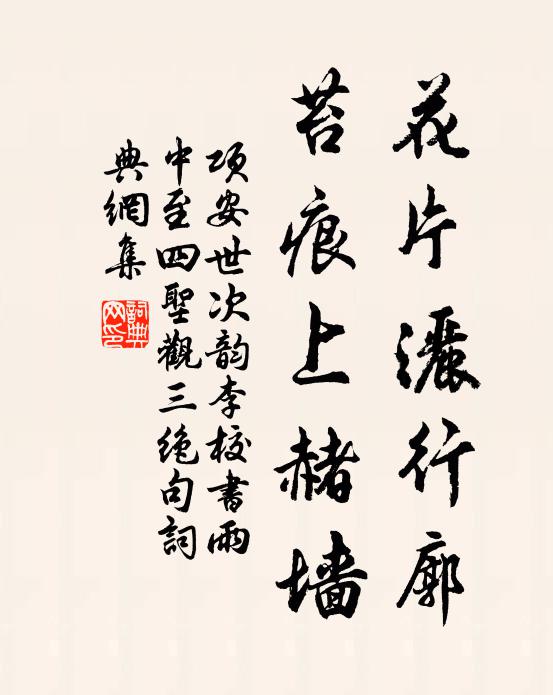 花片灑行廓
苔痕上赭墙
項安世次韵李校書雨
中至四聖觀三絶句詞
典網集
詞典
网印